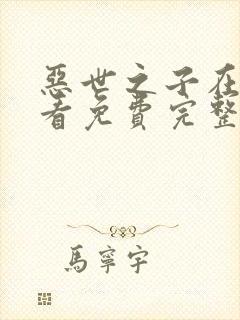 惡世之子在
看免費完整
馬寧宇